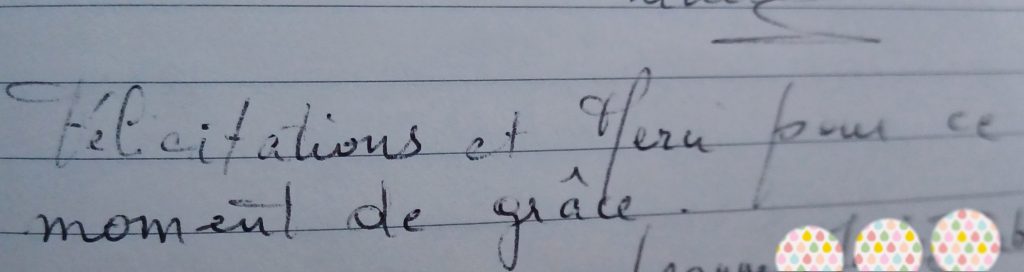 Félicitations et Merci pour ce
moment de grâce.